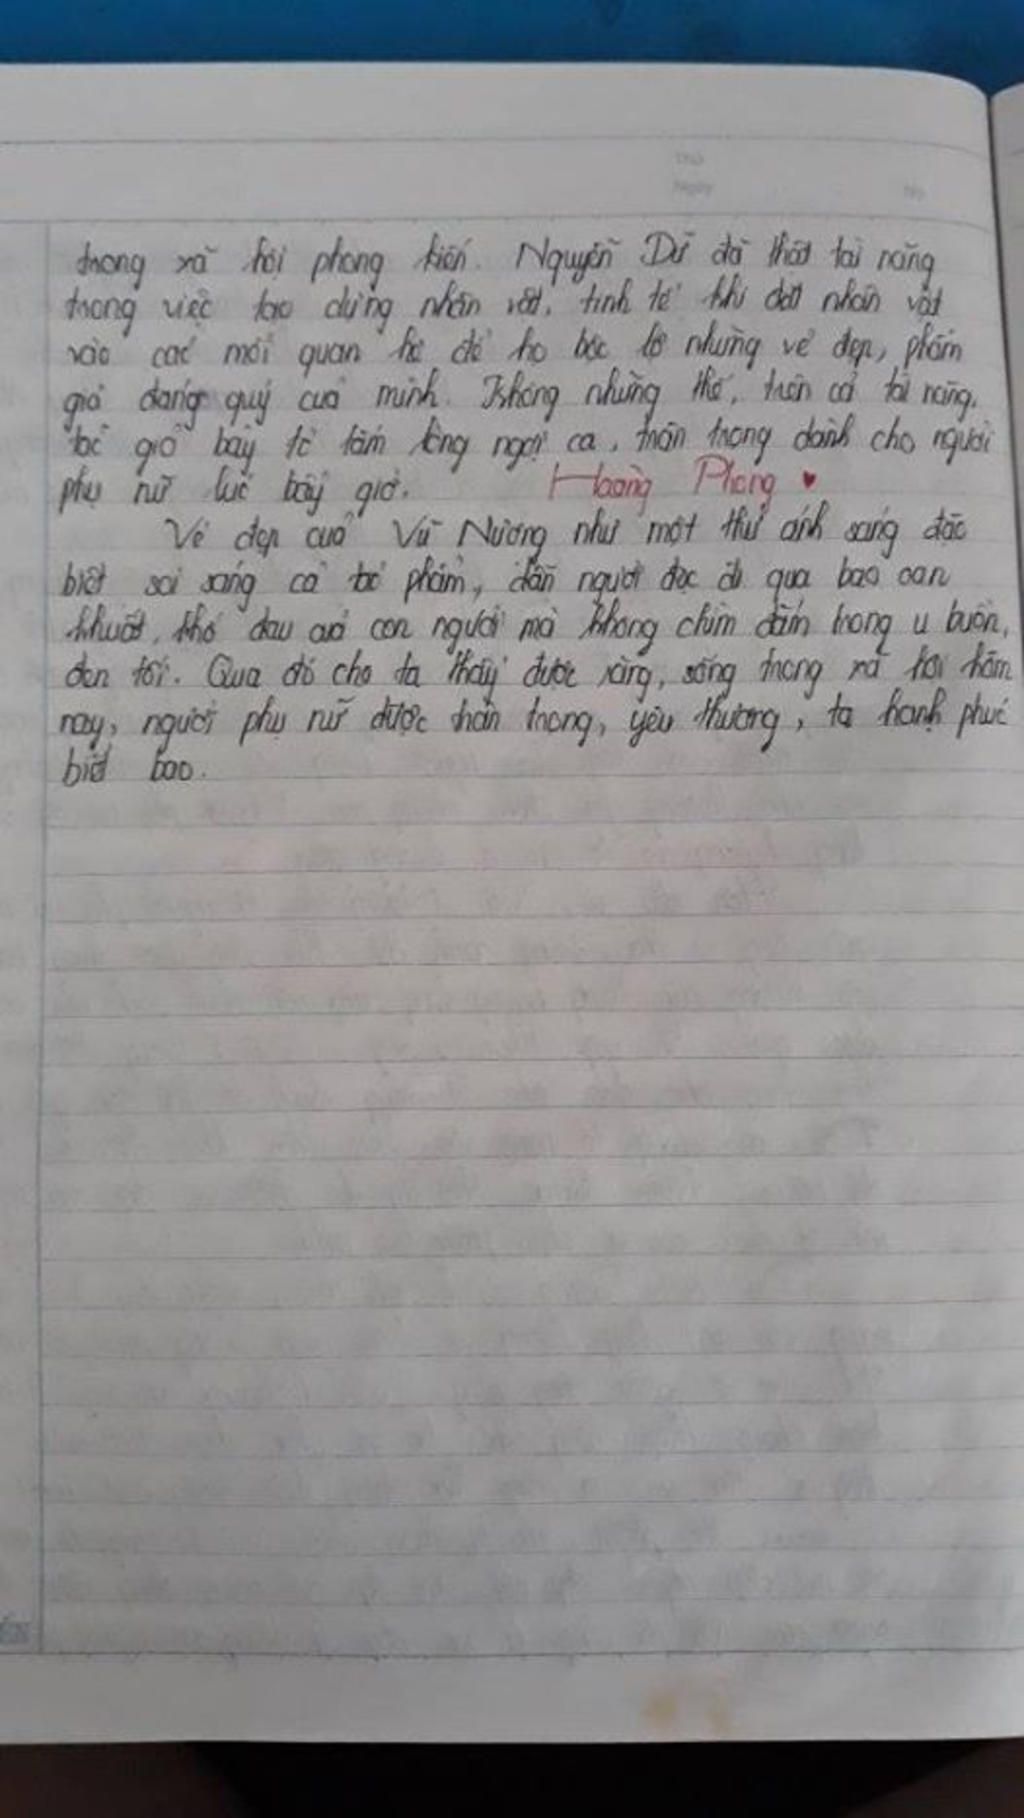 Thứ
Ngày No
trong xã hội phong kiến. Nguyễn Dữ đã thật tài năng
trong việc tạo dựng nhân vật, tinh tế khi đặt nhân vật
vào các mối quan hệ để họ bộc lộ những vẻ đẹp, phẩm
giá đáng quý của mình. Không những thế, trên cả tài năng,
tác giả bày tỏ tấm lòng ngợi ca, trân trọng dành cho người
phụ nữ lúc bấy giờ. Hoàng Phong ♥
Vẻ đẹp của Vũ Nương như một thứ ánh sáng đặc
biệt soi sáng cả tác phẩm, dẫn người đọc đi qua bao oan
khuất, khổ đau của con người mà không chìm đắm trong u buồn,
đen tối. Qua đó cho ta thấy được rằng, sống trong xã hội hôm
nay, người phụ nữ được trân trọng, yêu thương, ta hạnh phúc
biết bao.